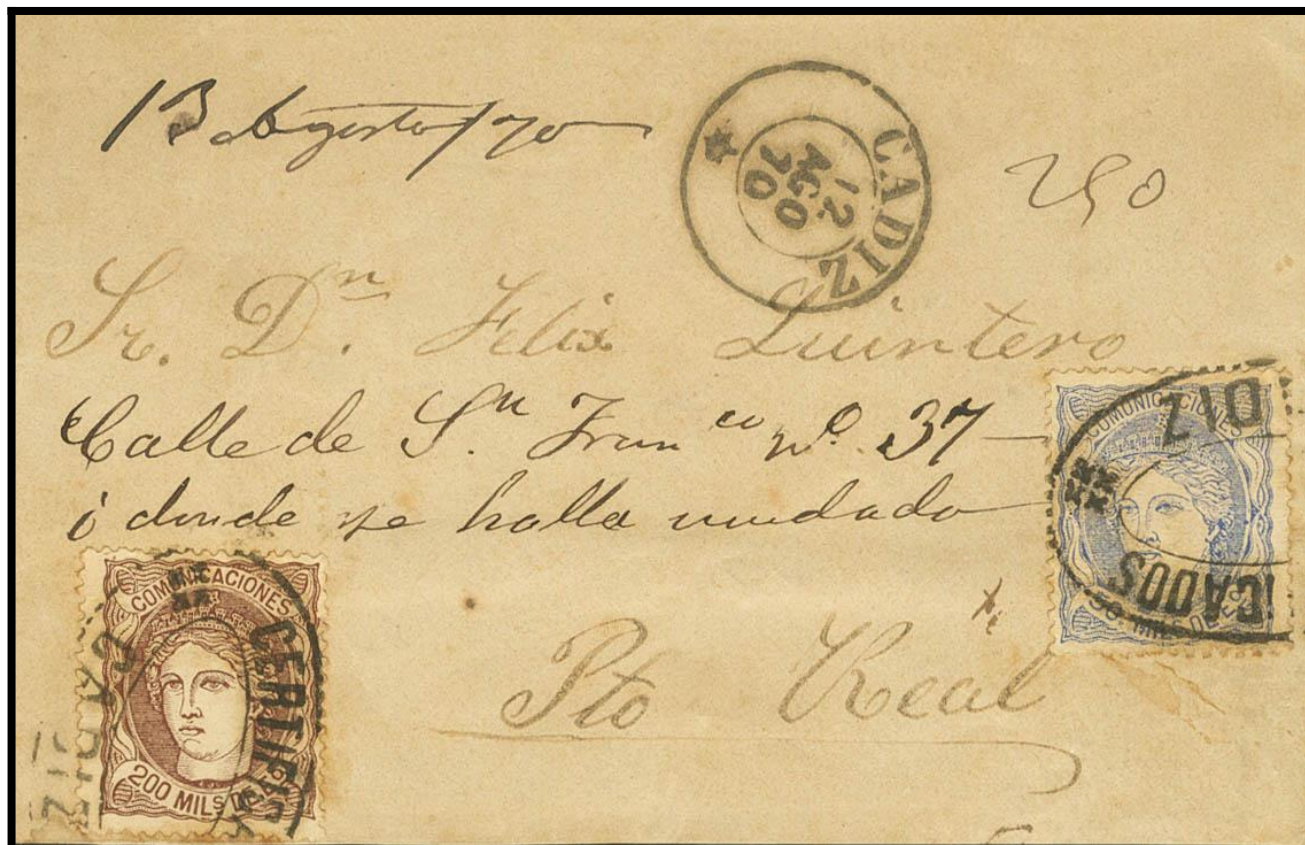 13 Agosto/70
CADIZ
12
AGO
70
250
Sr. Dn. Felix Quintero
Calle de Sn. Franco no 37
ó donde se halla mudado
Pto Real
COMUNICACIONES
50 MILS DE E
CADOS
DIZ
COMUNICACIONES
200 MILS DE
CERTIFIC
CADIZ